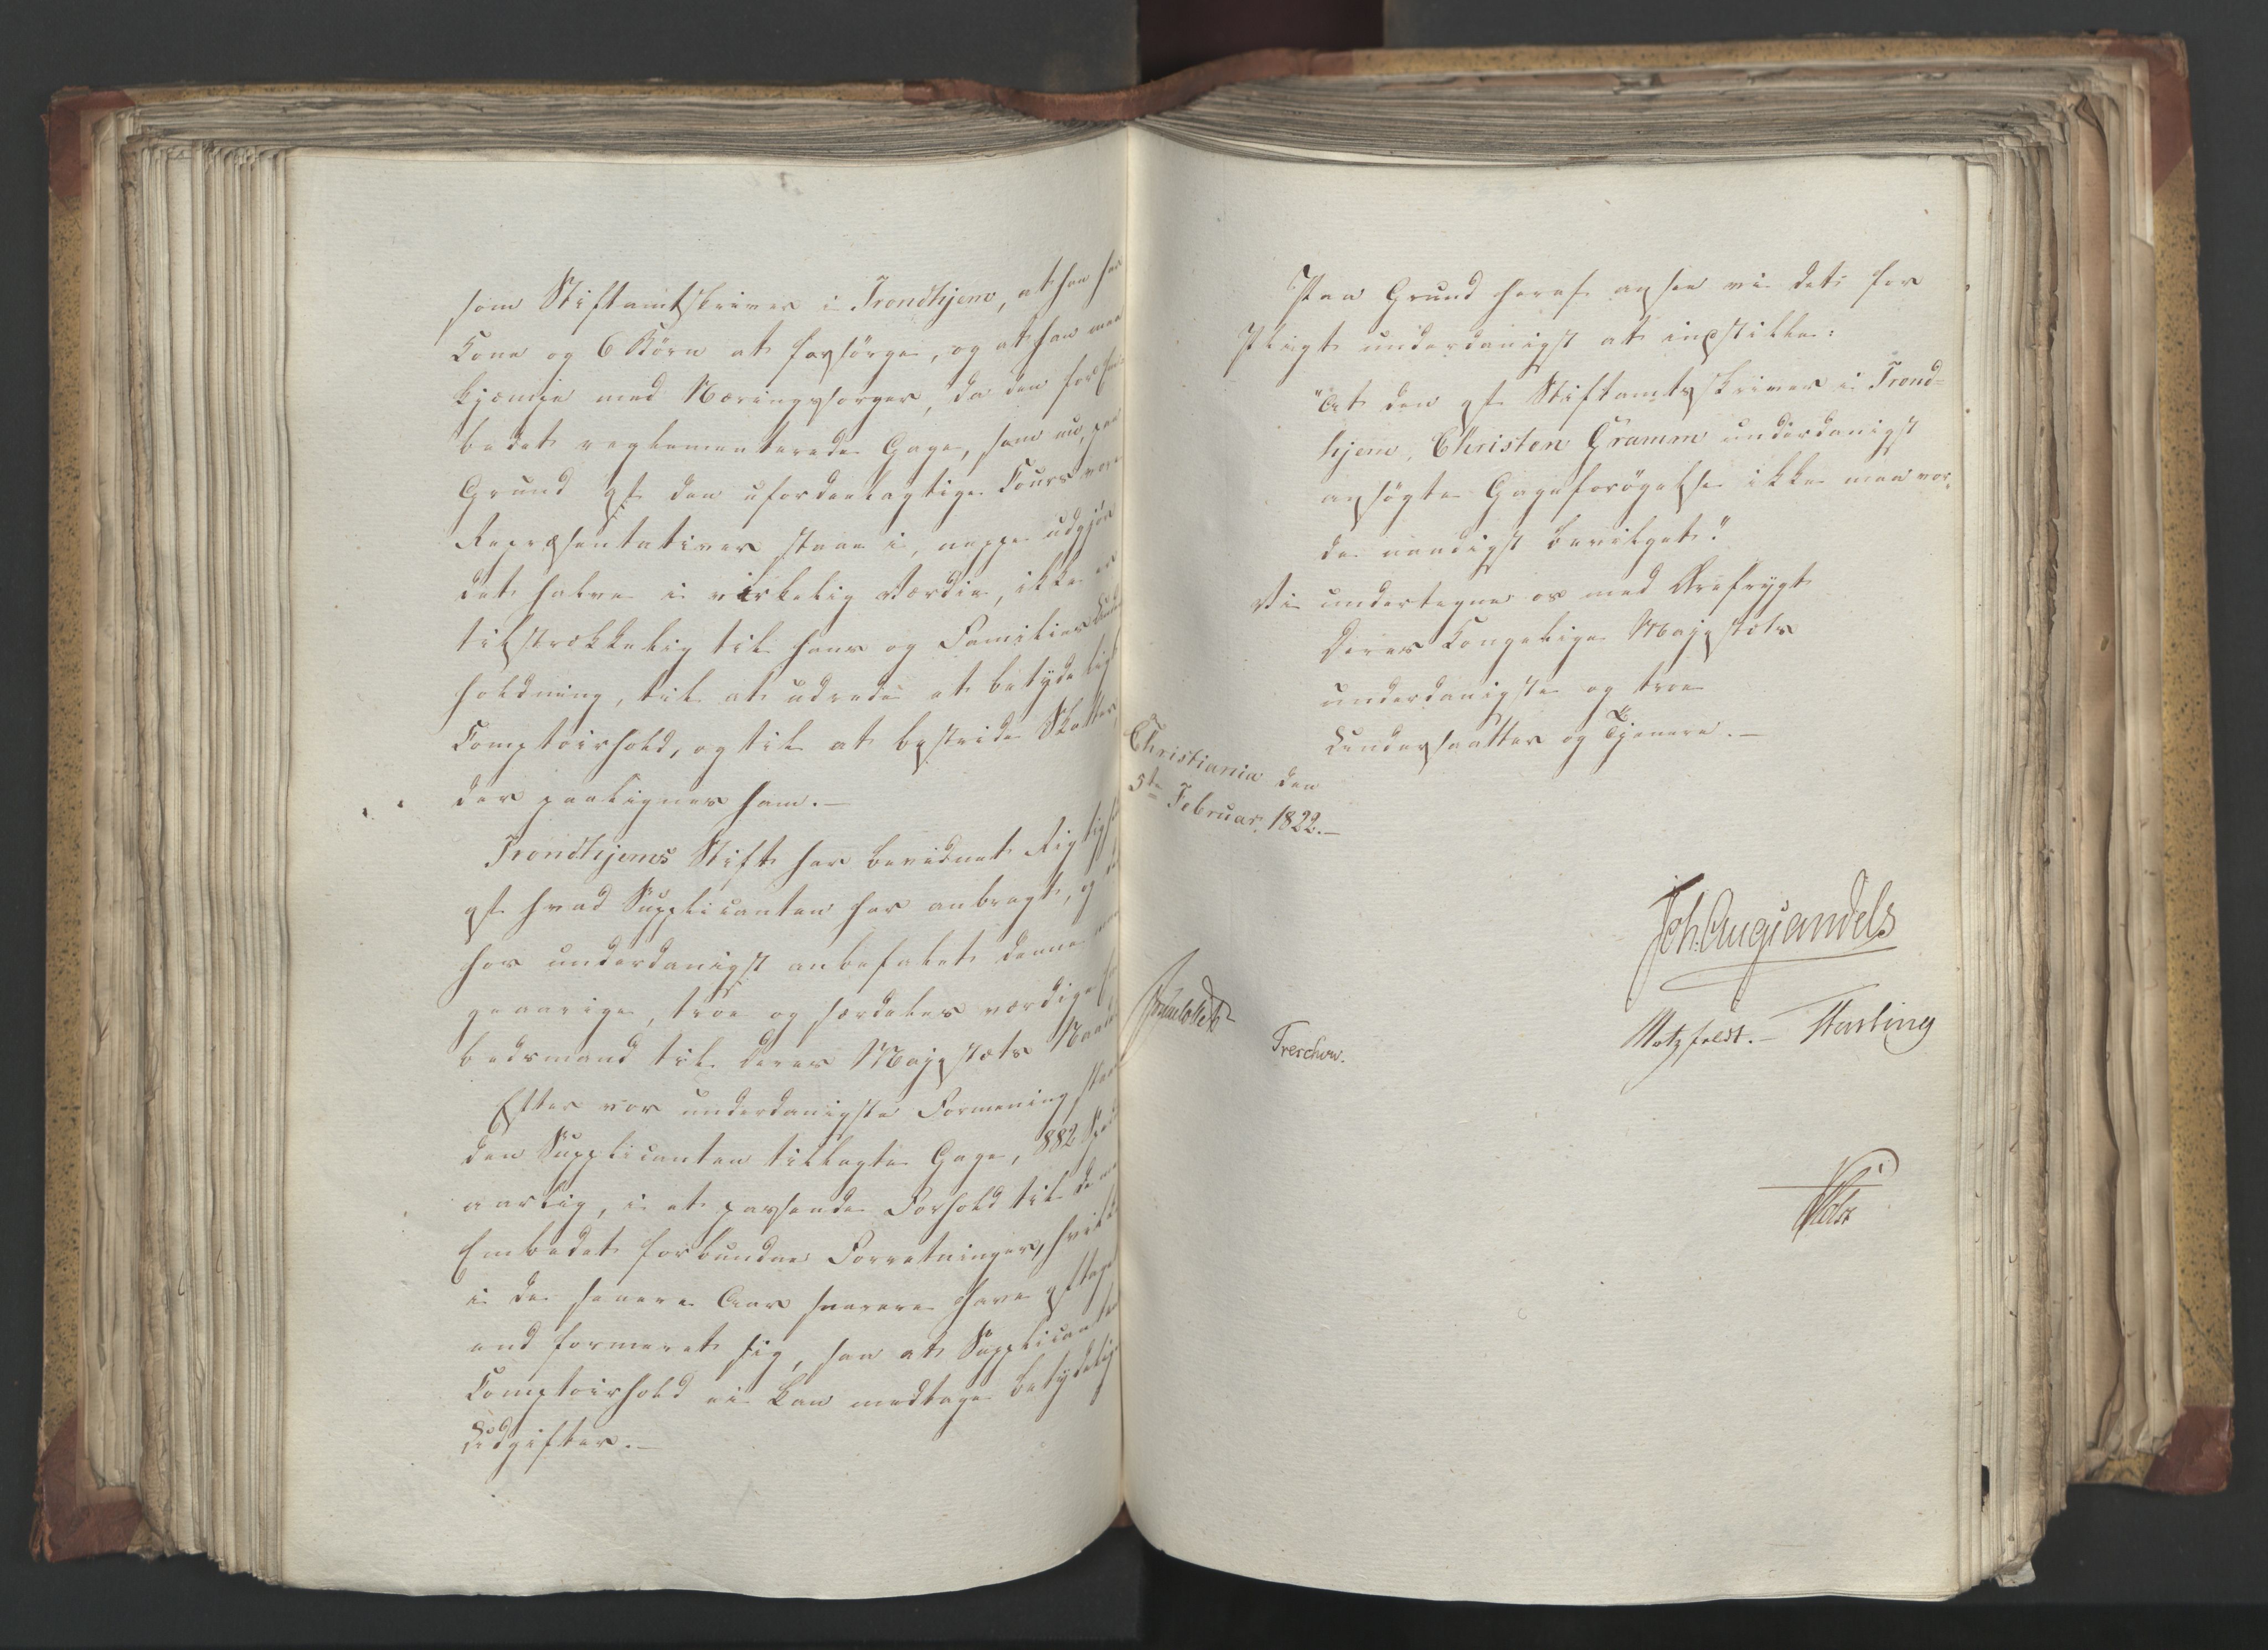 som Stiftamtskriver i Trondhjem, at han har
Kone og 6 Börn at forsörge, og at han maa
kjæmpe med Næringssorger, da den for Em-
bedet reglementerede Gage, som nu, paa
Grund af den ufordeelagtige Cours vore
Repræsentativer staae i, neppe udgjör
det halve i virkelig Værdie, ikke er
tilstrækkelig til hans og Families Under-
holdning, til at udrede et betydeligt
Comptoirhold, og til at bestride Skatter,
der paalignes ham.—
Trondhjems Stift har bevidnet Rigtigheden
af hvad Supplicanten har anbragt, og det
har underdanigst anbefalet denne
geaarige, troe og særdeles værdige Em-
bedsmand til Deres Majestæts Naade.
Efter vor underdanigste Formening staaer
den Supplicanten tillagte Gage, 882 Spd
aarlig, i et passende Forhold til de med
Embedet forbundne Forretninger, hvilke
i de senere Aar snarere have aftaget
end formeret sig, saa at Supplicantens
Comptoirhold ei kan medtage betydelige
Udgifter.—
Paa Grund heraf ansee vi det for
Pligt underdanigst at indstille:
"At den af Stiftamtsskriver i Trond-
hjem, Christen Gramm underdanigst
ansögte Gageforögelse ikke maa vor-
de naadigst bevilget."
Vi undertegne os med Ærefrygt
Deres Kongelige Majestæts
underdanigste og troe
Undersaatter og Tjenere.—
Christiania den
5te Februar 1822.—
Joh. Aug. Sandels
Treschow.
Motzfeldt.— Fasting
Holst